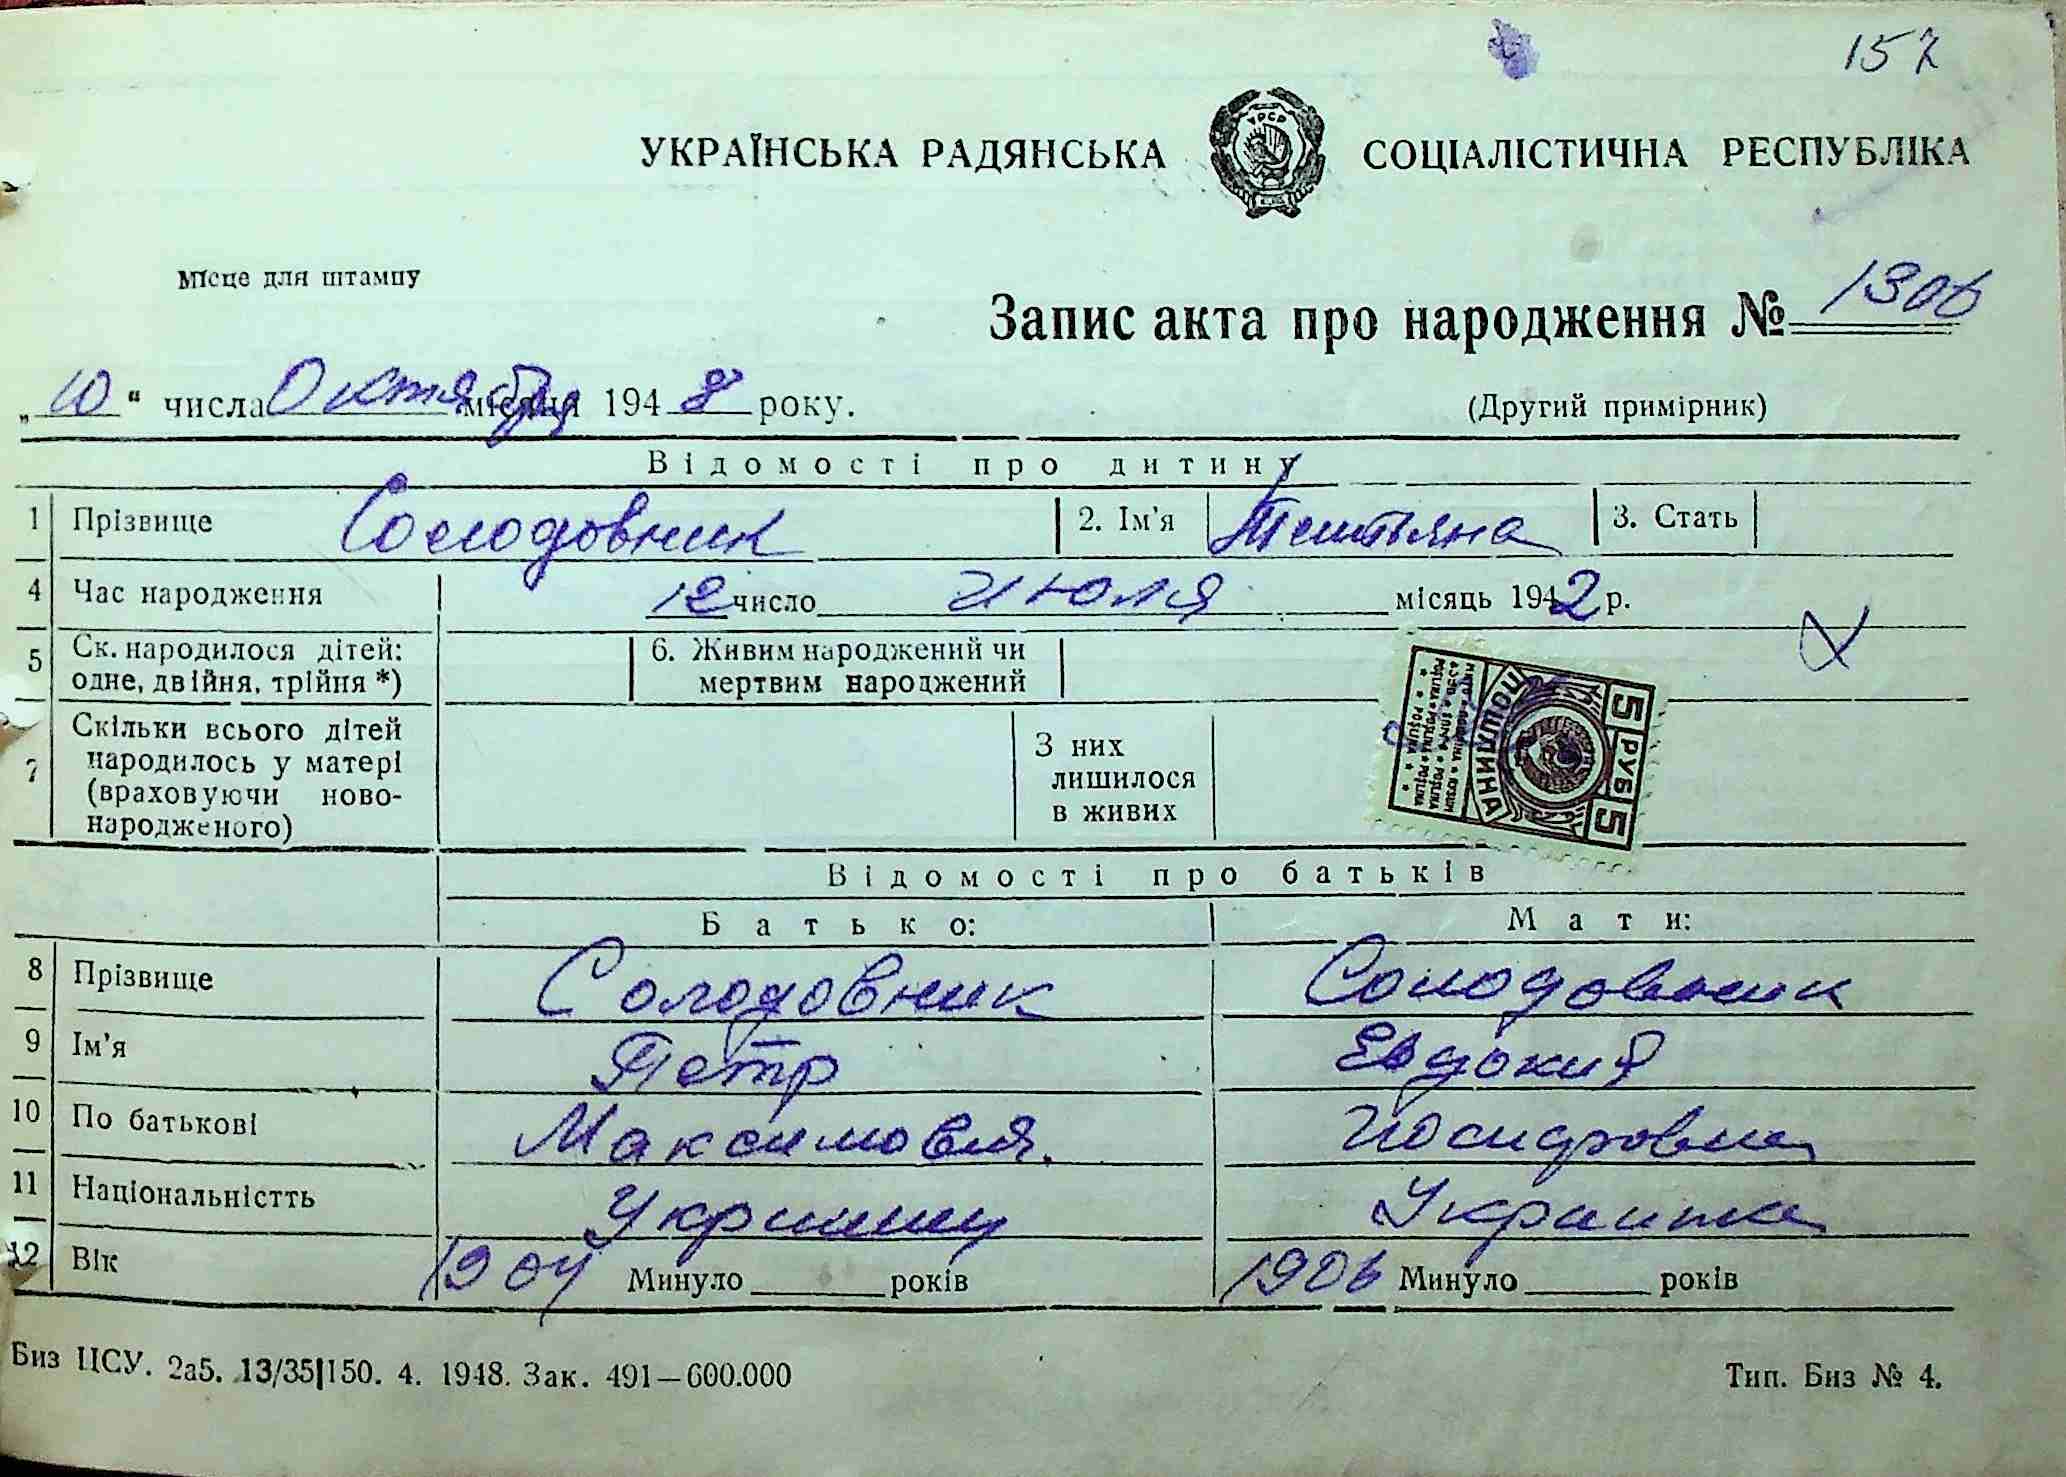 157
УКРАЇНСЬКА РАДЯНСЬКА СОЦІАЛІСТИЧНА РЕСПУБЛІКА
УРСР
Місце для штампу
Запис акта про народження № 1306
„10“ числа Октября місяця 1948 року.
(Другий примірник)
Відомості про дитину
1 Прізвище Солодовник 2. Ім'я Татьяна 3. Стать
4 Час народження 12 число Июля місяць 1942 р.
5 Ск. народилося дітей: одне, двійня, трійня *) 6. Живим народжений чи мертвим народжений
7 Скільки всього дітей народилось у матері (враховуючи новонародженого) З них лишилося в живих
5 РУБ 5
ПОШЛИНА
Відомості про батьків
Батько: Мати:
8 Прізвище Солодовник Солодовник
9 Ім'я Петр Евдокия
10 По батькові Иосифовна
11 Національністть Украинец Украинка
12 Вік 1904 Минуло років 1906 Минуло років
Биз ЦСУ. 2а5. 13/35|150. 4. 1948. Зак. 491—600.000
Тип. Биз № 4.